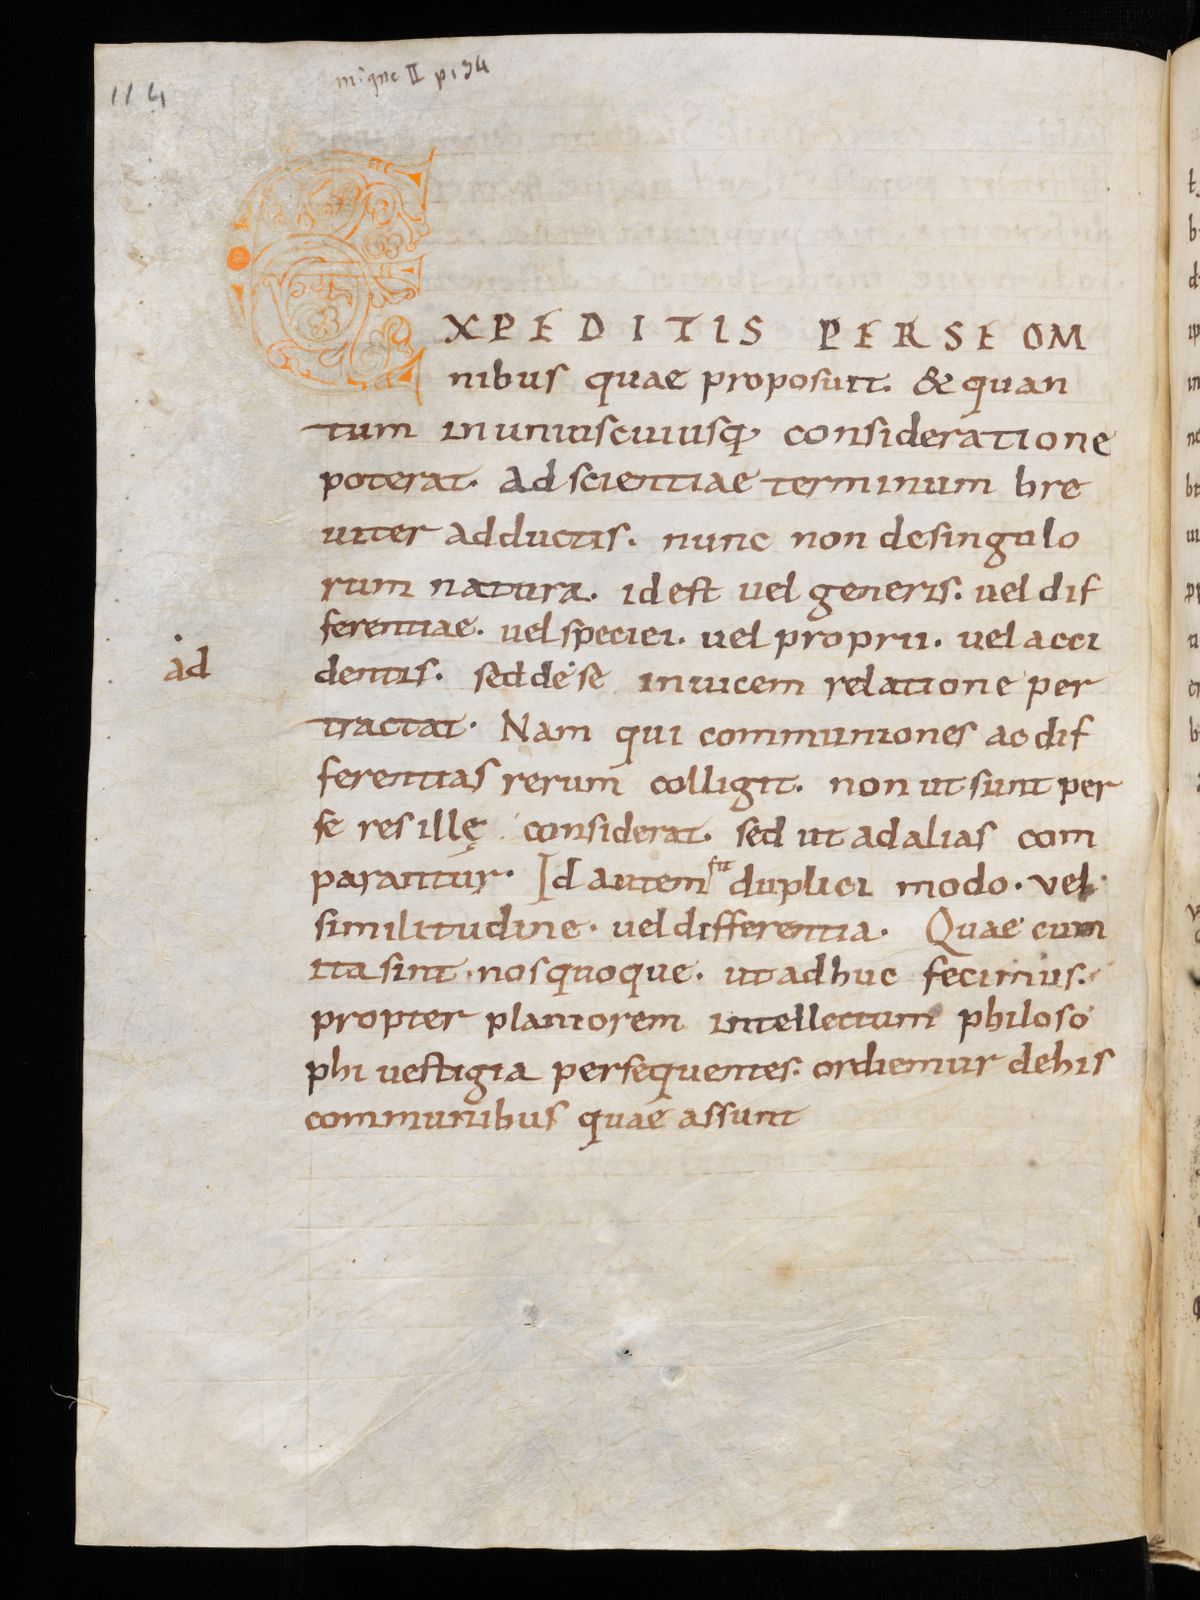 114
migne II p 134
EXPEDITIS PER SE OM
nibus quae proposuit. & quan
tum in uniuscuiusq; consideratione
poterat. ad scientiae terminum bre
uiter adductis. nunc non desingulo
rum natura. id est uel generis. uel dif
ferentiae. uel speciei. uel proprii. uel acci
ad
dentis. sed de se inuicem relatione per
tractat. Nam qui communiones ac dif
ferentias rerum colligit. non ut sunt per
se res illę considerat. sed ut ad alias com
parantur. Id autem fit duplici modo. vel
similitudine. uel differentia. Quae cum
ita sint. nos quoque. ut adhuc fecimus.
propter planiorem intellectum philoso
phi uestigia persequentes. ordiemur de his
communibus quae assunt